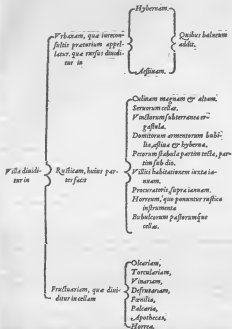 Hybernam.
Vrbanam, quæ iureconsultis
prætorium appellatur.
quæ rursus diuiditur
in
Quibus balneum
addit.
Æstiuam.
Villa diuiditur
in
Rusticam, huius partes
facit
Culinam magnam & altam.
Seruorum cellas.
Vinctorum subterranea ergastula.
Domitorum armentorum bubilia,
æstiua & hyberna.
Pecorum stabula partim tecta, partim
sub dio.
Villici habitationem iuxta ianuam.
Procuratoris, supra ianuam.
Horreum, quo ponuntur rustica
instrumenta
Bubulcorum pastorumque
cellas.
Fructuariam, quæ diuiditur
in cellam
Oleariam,
Torculariam,
Vinariam,
Defrutariam,
Fœnilia,
Palearia,
Apothecas,
Horrea.